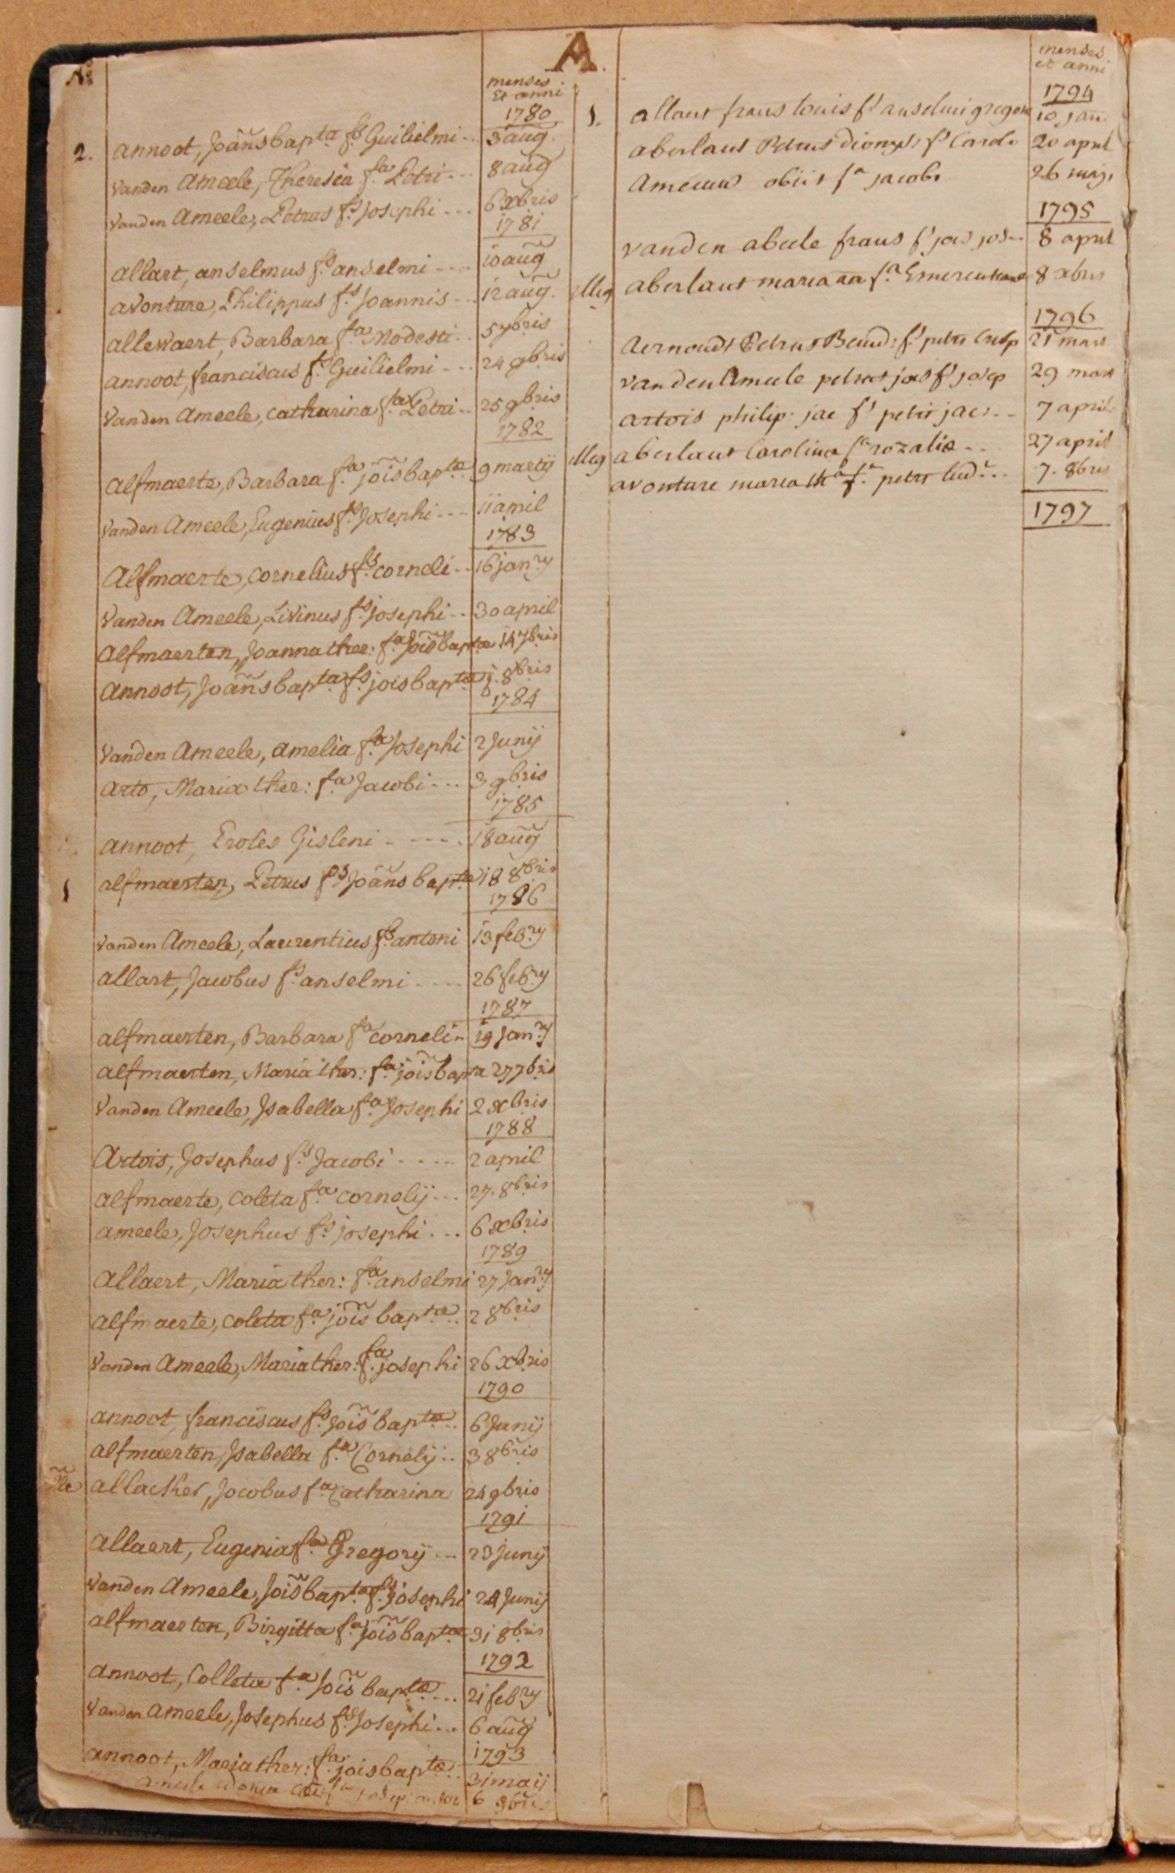 A.
menses
et anni
1780
2. annoot, Joãnsbapta fs Guilielmi 3 aug.
vanden Ameele, Theresia fa Petri 8 aug
vanden Ameele, Petrus fs Josephi 6 xbris
1781
allart, anselmus fs anselmi 10 aug
avonture, Philippus fs Joannis 12 aug.
allewaert, Barbara fa Modesti 5 7bris
annoot, franciscus fs Guilielmi 24 9bris
vanden Ameele, catharina fa Petri 25 9bris
1782
alfmaerte, Barbara fa joisbaptæ 9 martij
vanden Ameele, Eugenius fs Josephi 11 april
1783
Alfmaerte, Cornelius fs corneli 16 janry
vanden Ameele, Livinus fs josephi 30 april
alfmaerten, Joanna ther: fa Joisbaptæ 14 7bris
annoot, Joãnsbapta fs joisbaptæ 8bris
1784
vanden Ameele, amelia fa Josephi 2 Junij
arto, Maria ther: fa Jacobi 3 9bris
1785
annoot, Eroles Gisleni 18 aug
1 alfmaerten, Petrus fs Joãns baptæ 18 8bris
1786
vanden Ameele, Laurentius fs antoni 13 febry
allart, Jacobus fs anselmi 26 febry
1787
alfmaerten, Barbara fa corneli 19 Janry
alfmaerten, Maria ther: fa joisbapta 27 7bris
vanden Ameele, Isabella fa Josephi 2 xbris
1788
Artois, Josephus fs Jacobi 2 april
alfmaerte, coleta fa cornelij 27. 8bris
ameele, Josephus fs josephi 6 xbris
1789
allaert, Maria ther: fa anselmi 27 Janry
alfmaerte, coleta fa joisbaptæ 2 8bris
vanden Ameele, Maria ther: fa josephi 26 Xbris
1790
annoot, franciscus fs Joisbaptæ 6 Junij
alfmaerten, Isabella fa Cornelij 3 8bris
allacker, Jocobus fa Catharina 24 9bris
1791
allaert, Eugenia fa Gregorij 23 junij
vanden Ameele, Joisbapta fs josephi 24 Junij
alfmaerten, Birgitta fa joisbaptæ 31 8bris
1792
annoot, Colleta fa Joisbaptæ 21 febry
vanden ameele, Josephus fs Josephi 6 aug
1793
annoot, Maria ther: fa joisbaptæ 31 maij
6 9bris
menses
et anni
1794
1. allaert frans louis fs anselmi gregori 10 jan.
aberlant Petrus Dionys: fs Carol. 20 april
fa jacobi 26
1795
vanden abeele frans fs jois jos 8 april
illeg aberlant maria fa Emerentiana 8 xbris
1796
Aernoudt Petrus Bened: fs petri Crisp 21 mars
vanden Ameele petrus jos fs josep 29 mars
artois philip. jac fs petri jac 7 april
illeg aberlant Carolina fa rozalie 27 april
avonture maria th fa petri lud 7. 8bris
1797